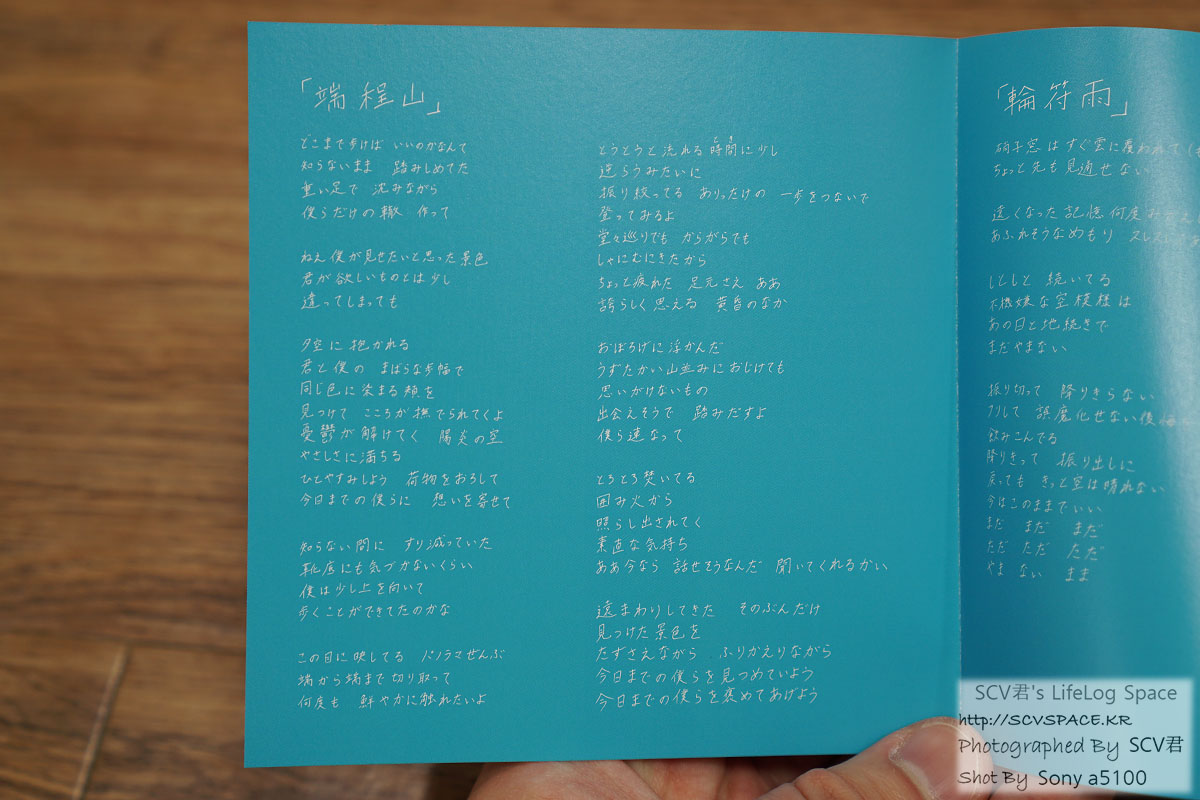 「端程山」
どこまで歩けば いいのかなんて
知らないまま 踏みしめてた
重い足で 沈みながら
僕らだけの轍 作って
ねえ僕が見せたいと思った景色
君が欲しいものとは少し
違ってしまっても
夕空に抱かれる
君と僕の まばらな歩幅で
同じ色に染まる頬を
見つけて こころが撫でられてくよ
憂鬱が解けてく 陽炎の空
やさしさに満ちる
ひとやすみしよう 荷物をおろして
今日までの僕らに 想いを寄せて
知らない間に すり減っていた
靴底にも気づかないくらい
僕は少し上を向いて
歩くことができてたのかな
この目に映してる パノラマぜんぶ
端から端まで切り取って
何度も 鮮やかに触れたいよ
とうとうと流れる時間に少し
逆らうみたいに
振り絞ってる ありったけの 一歩をつないで
登ってみるよ
堂々巡りでも からがらでも
しゃにむにきたから
ちょっと疲れた 足元さえ ああ
誇らしく思える 黄昏のなか
おぼろげに浮かんだ
うずたかい山並みにおじけても
思いがけないもの
出会えそうで 踏みだすよ
僕ら連なって
とろとろ焚いてる
囲み火から
照らし出されてく
素直な気持ち
ああ今なら 話せそうなんだ 聞いてくれるかい
遠まわりしてきた そのぶんだけ
見つけた景色を
たずさえながら ふりかえりながら
今日までの僕らを見つめていよう
今日までの僕らを褒めてあげよう
「輪符雨」
硝子窓はすぐ雲に覆われて
ちょっと先も見通せない
遠くなった記憶何度
あふれそうなめもり スレスレ
しとしと 続いてる
不機嫌な空模様は
あの日と地続きで
まだやまない
振り切って 降りきらない
フリして 誤魔化せない後悔
飲みこんでる
降りきって 振り出しに
戻っても きっと空は晴れない
今はこのままでいい
まだ まだ まだ
ただ ただ ただ
やま ない まま
SCV君's LifeLog Space
http://SCVSPACE.KR
Photographed By SCV君
Shot By Sony a5100